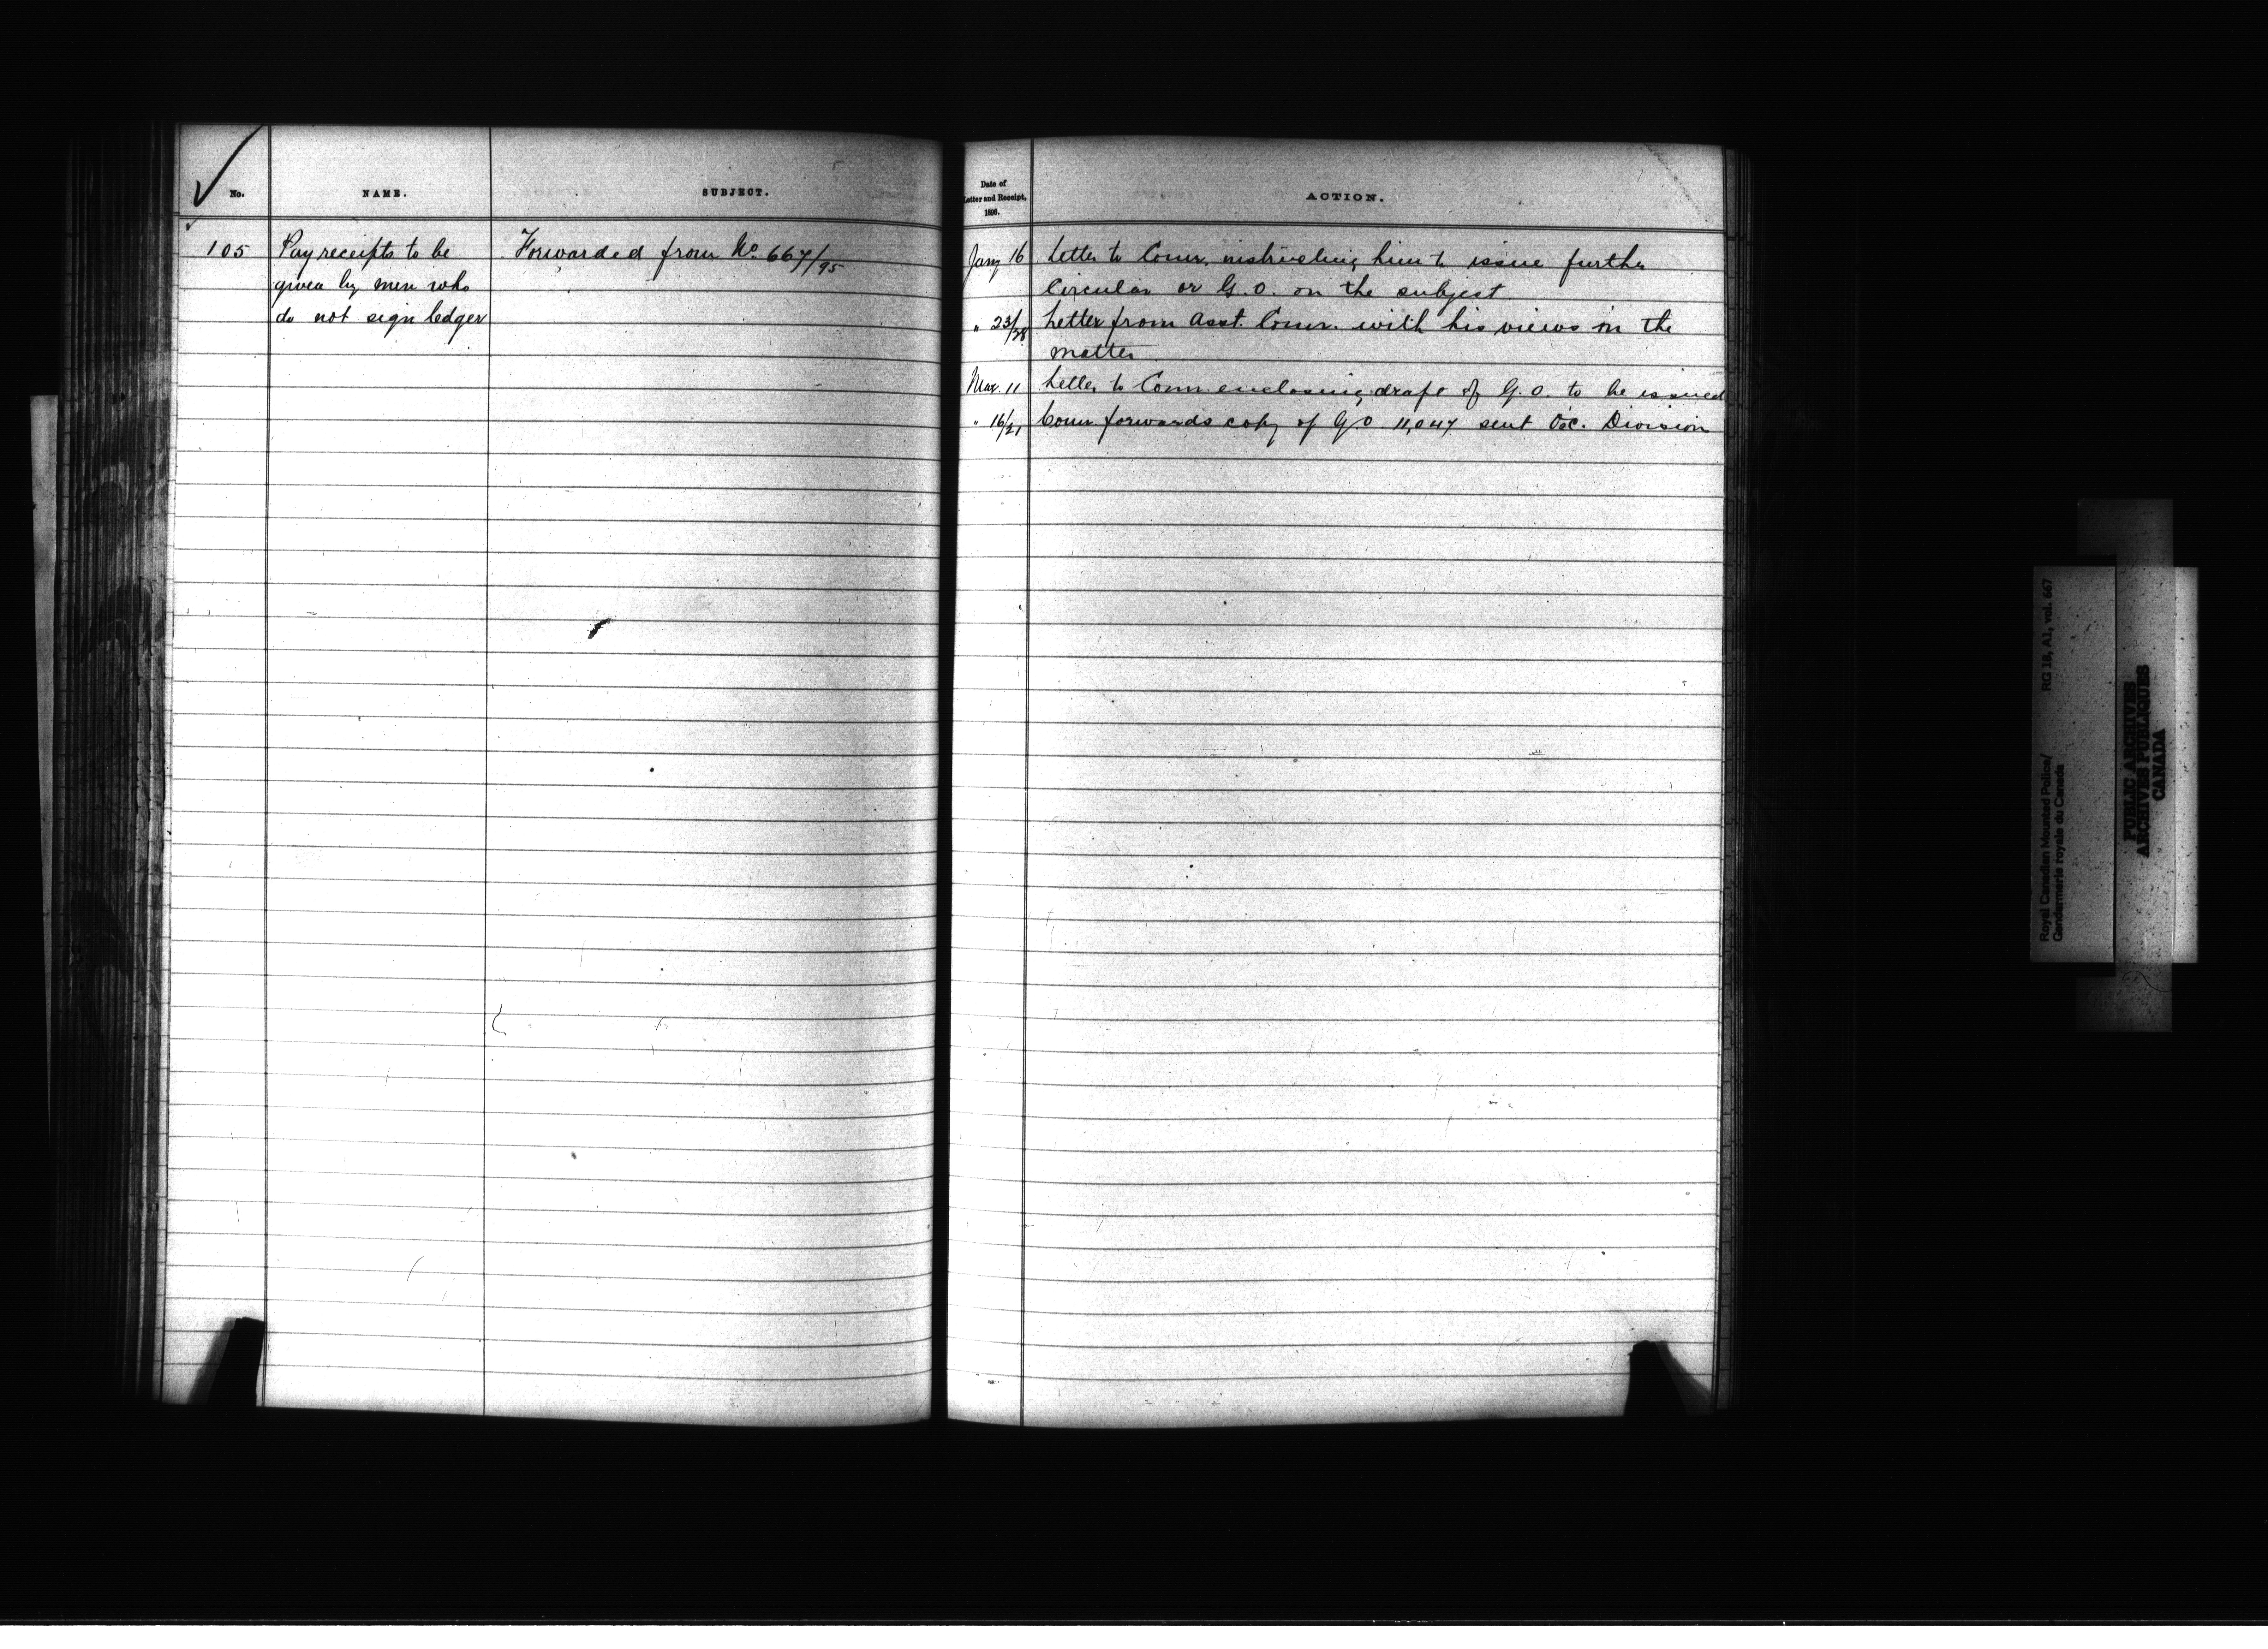 No.
NAME.
SUBJECT.
105
Pay receipts to be
given by men who
do not sign ledger
Forwarded from No. 667/95
Date of
Letter and Receipt,
1896.
ACTION.
Jany 16 Letter to Comr. instructing him to issue further
Circular or G.O. on the subject.
" 23/28 Letter from Asst. Comr. with his views in the
matter
Mar. 11 Letter to Comr enclosing draft of G.O. to be issued
" 16/21 Comr forwards copy of G.O. 11,047 sent O.C. Division
Royal Canadian Mounted Police/ RG 18, A1, vol. 667
Gendarmerie royale du Canada
PUBLIC ARCHIVES
ARCHIVES PUBLIQUES
CANADA